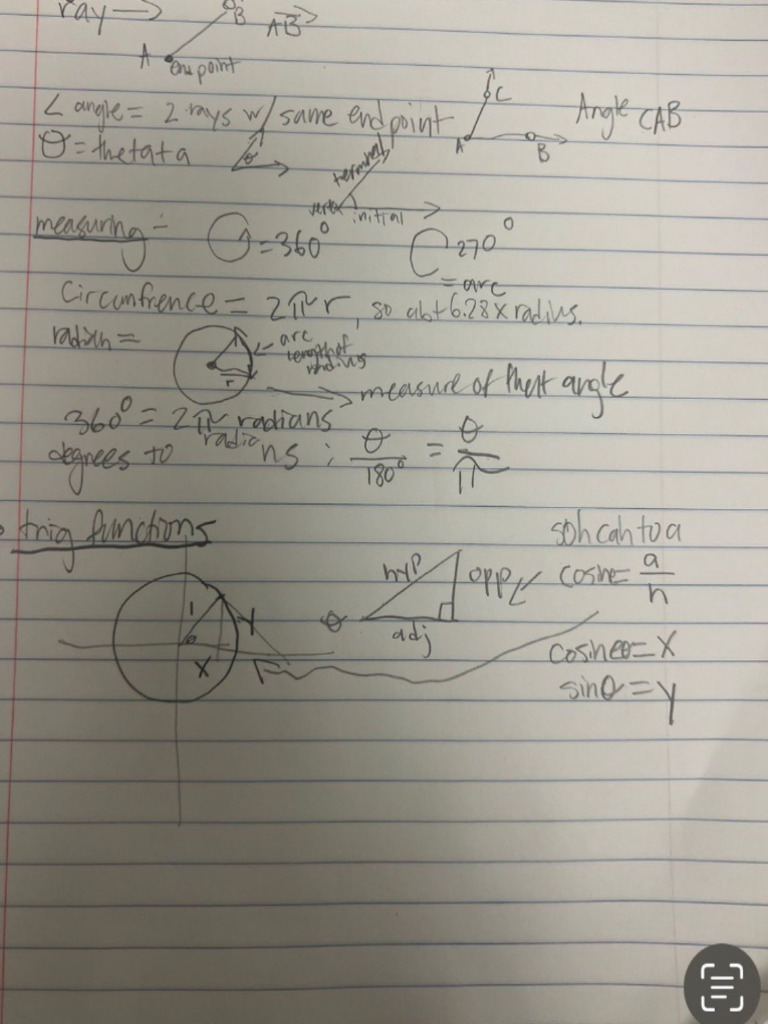 ray → B AB
A endpoint
∠ angle = 2 rays w/ same endpoint C A B Angle CAB
θ = thetata θ terminal
vertex initial
measuring - = 360° 270°
= arc
Circumfrence = 2πr, so abt 6.28 x radius.
radian = r ← arc length of radius
→ measure of that angle
360° = 2π radians
degrees to radians : θ/180° = θ/π
trig functions sohcahtoa
hyp opp cosine = a/h
1 y θ adj
θ x cosineθ = x
sinθ = y